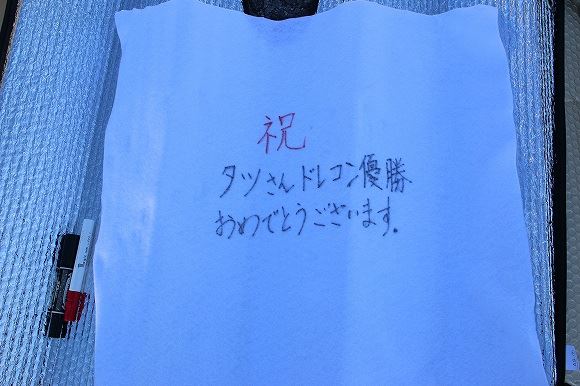 祝
タツさんドレコン優勝
おめでとうございます.